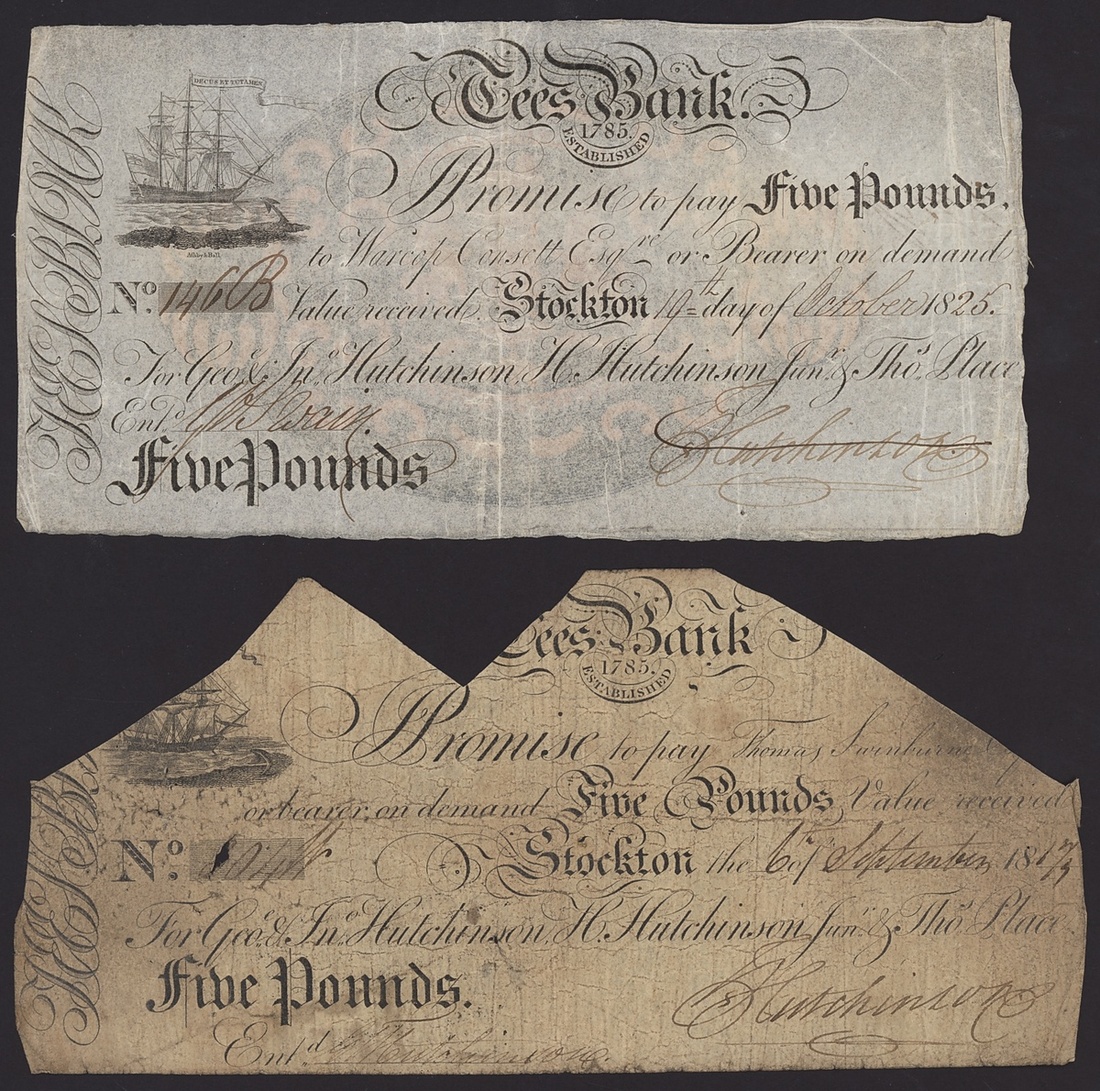 TEES BANK
DECUS ET TUTAMEN
Tees Bank.
1785.
ESTABLISHED
I Promise to pay Five Pounds.
Ashby & Hall
to Warcop Consett Esqre. or Bearer on demand
No. 1460B Value received. Stockton 19th day of October 1825.
For Geo. & Jno. Hutchinson, H. Hutchinson Junr. & Thos. Place
Entd.
Five Pounds
Hutchinson
Tees Bank
1785.
ESTABLISHED
I Promise to pay Thomas Swinburne
or bearer, on demand Five Pounds, Value received
TEES B
No. Stockton the 6 of September, 18
For Geo. & Jno. Hutchinson, H. Hutchinson Junr. & Thos. Place.
Five Pounds.
Hutchinson
Entd. Hutchinson